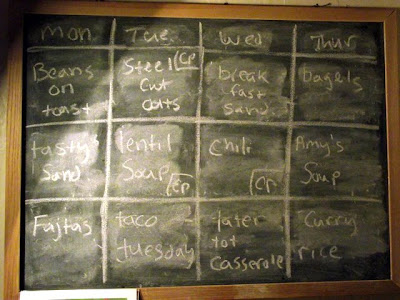 Mon Tue Wed Thur
Beans
on
toast
Steel CP
cut
oats
break
fast
sand
bagels
tasty
Sand.
lentil
Soup CP
Chili
CP
Amy's
Soup
Fajtas
taco
tuesday
tater
tot
casserole
Curry
rice